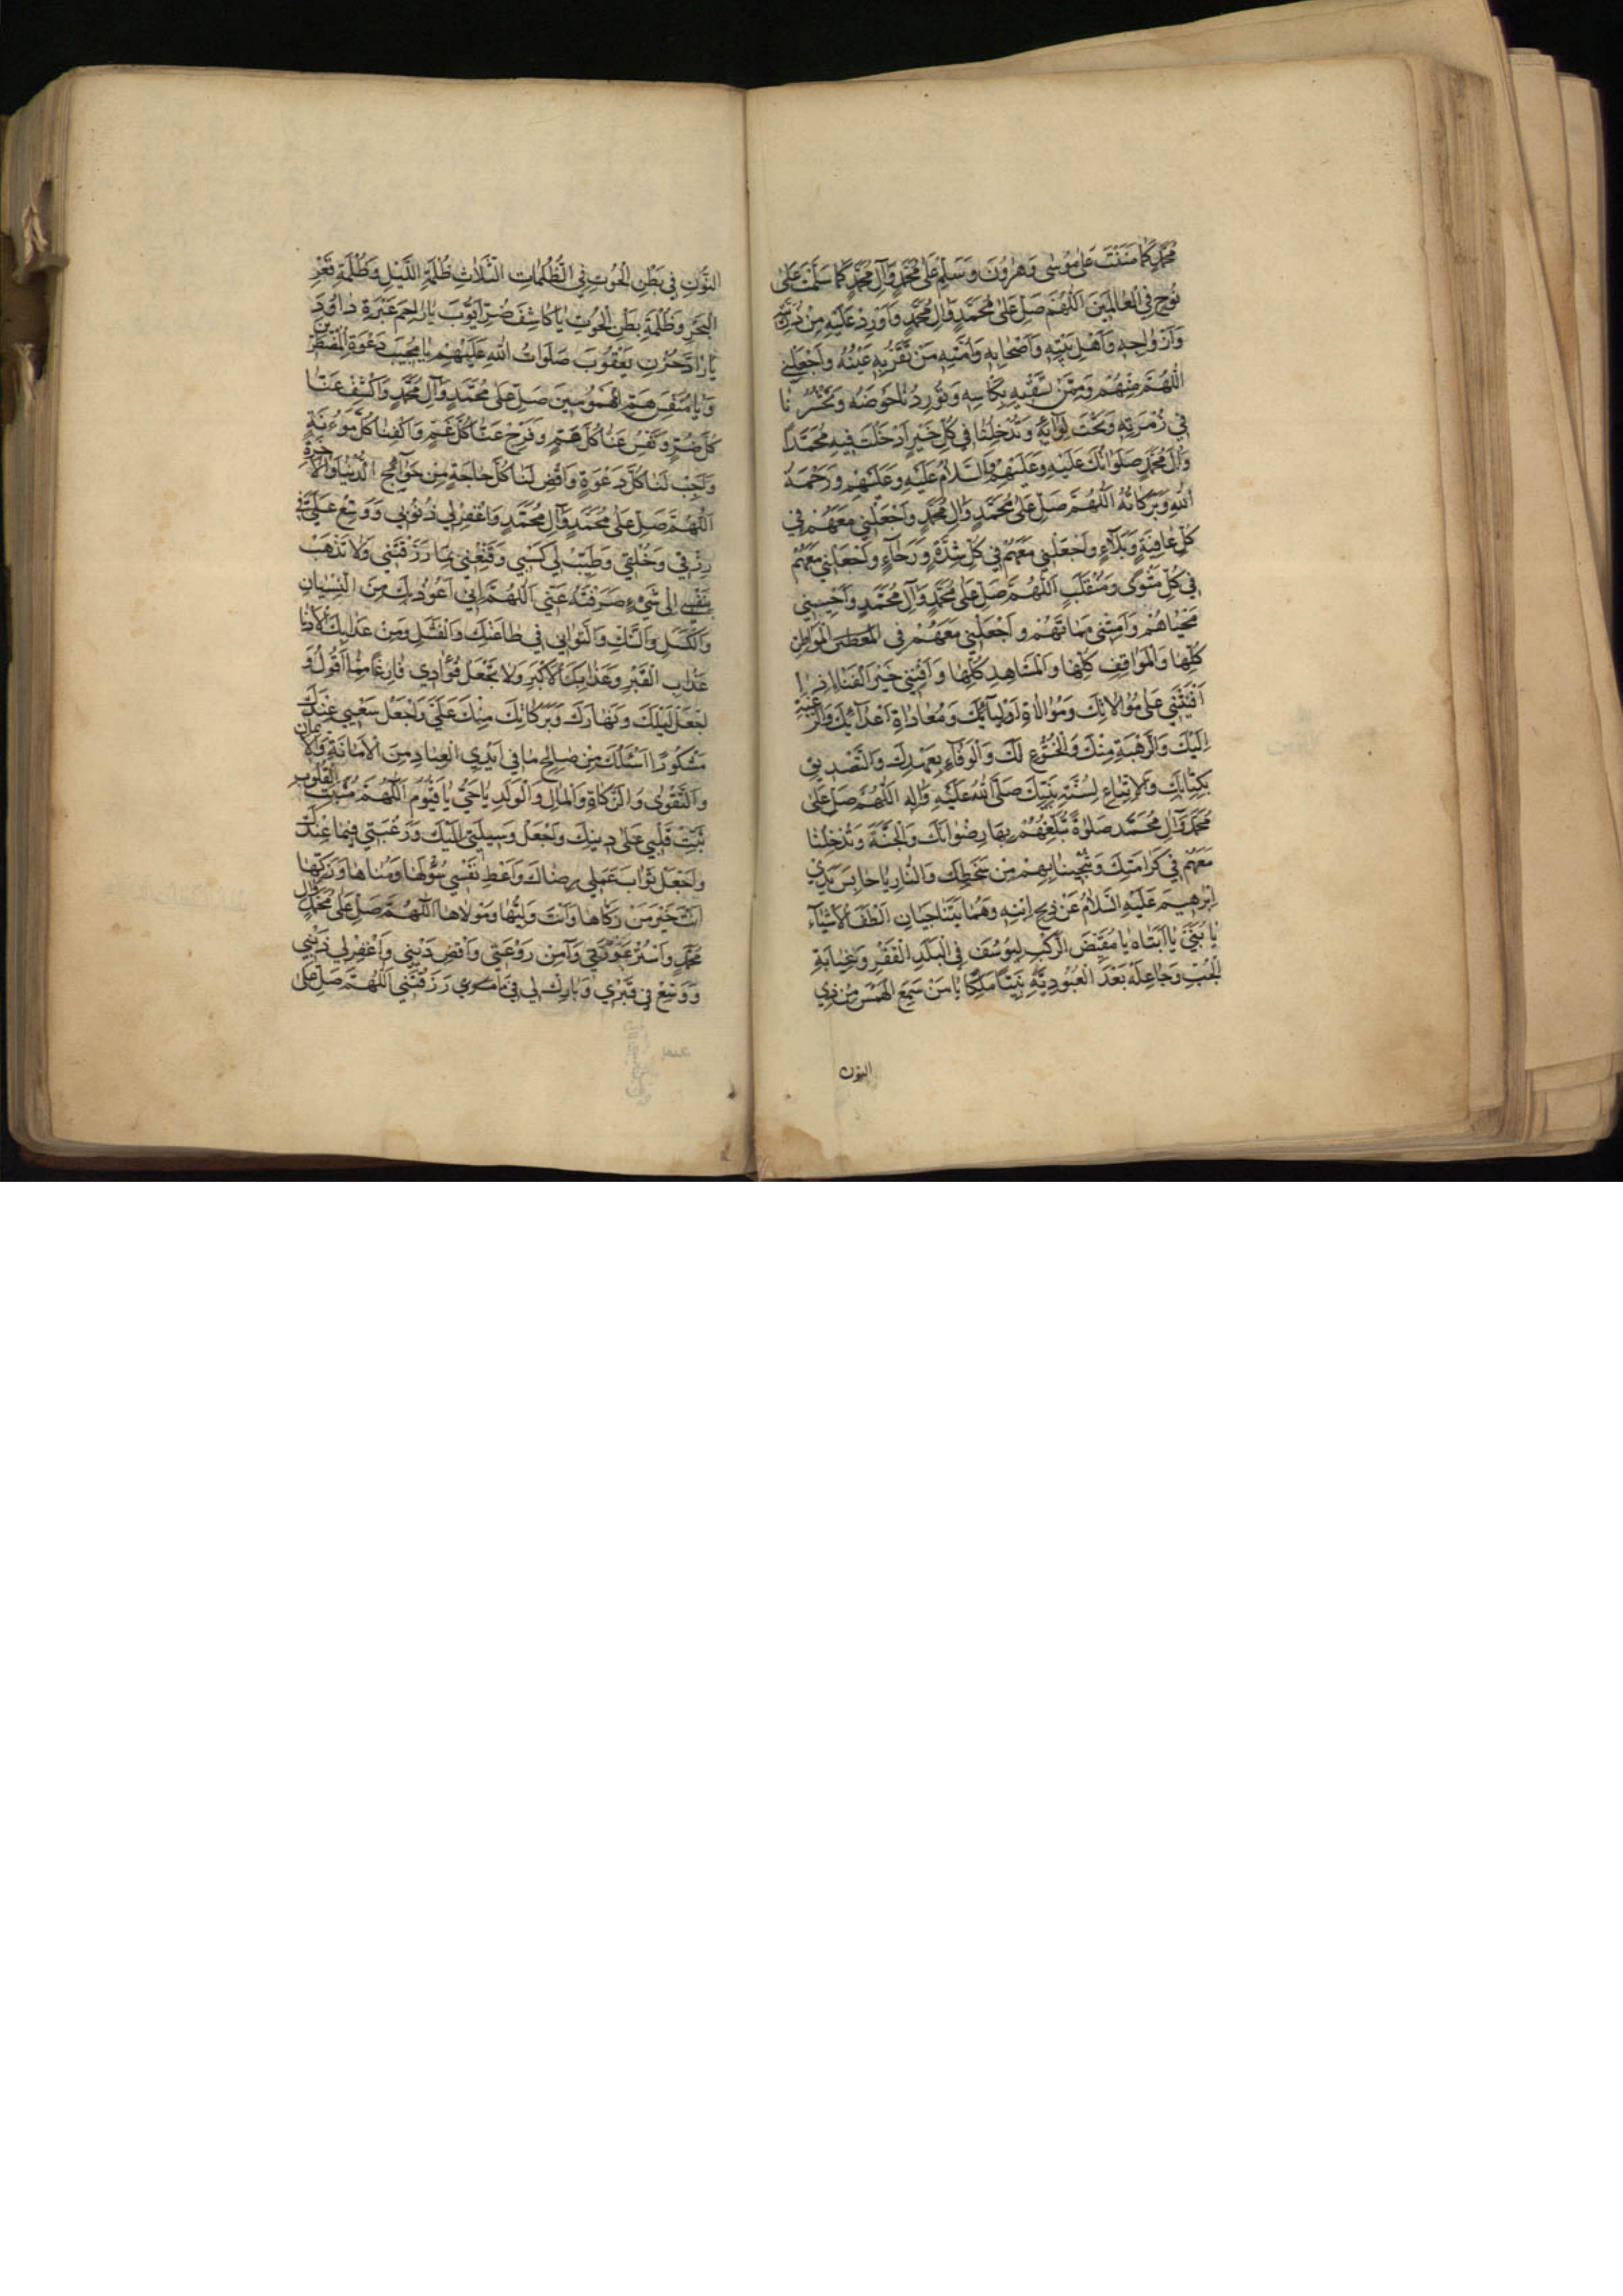 مُحَمَّدٍ كَمَا مَنَنْتَ عَلَى مُوسَى وَهٰرُونَ وَسَلِّمْ عَلَى مُحَمَّدٍ وَآلِ مُحَمَّدٍ كَمَا سَلَّمْتَ عَلَى
نُوحٍ فِي الْعَالَمِينَ اَللّٰهُمَّ صَلِّ عَلَى مُحَمَّدٍ وَآلِ مُحَمَّدٍ وَأَوْرِدْ عَلَيْهِ مِنْ ذُرِّيَّتِهِ
وَأَزْوَاجِهِ وَأَهْلِ بَيْتِهِ وَأَصْحَابِهِ وَأُمَّتِهِ مَنْ تَقَرُّ بِهِ عَيْنُهُ وَاجْعَلْنِي
اللّٰهُمَّ مِنْهُمْ وَمِمَّنْ تَسْقِيهِ بِكَأْسِهِ وَتُورِدُنَا حَوْضَهُ وَتَحْشُرُنَا
فِي زُمْرَتِهِ وَتَحْتَ لِوَائِهِ وَتُدْخِلُنَا فِي كُلِّ خَيْرٍ أَدْخَلْتَ فِيهِ مُحَمَّدًا
وَآلَ مُحَمَّدٍ صَلَوَاتُكَ عَلَيْهِ وَعَلَيْهِمْ وَالسَّلَامُ عَلَيْهِ وَعَلَيْهِمْ وَرَحْمَةُ
اللّٰهِ وَبَرَكَاتُهُ اَللّٰهُمَّ صَلِّ عَلَى مُحَمَّدٍ وَآلِ مُحَمَّدٍ وَاجْعَلْنِي مَعَهُمْ فِي
كُلِّ عَافِيَةٍ وَبَلَاءٍ وَاجْعَلْنِي مَعَهُمْ فِي كُلِّ شِدَّةٍ وَرَخَاءٍ وَاجْعَلْنِي مَعَهُمْ
فِي كُلِّ مَثْوًى وَمُنْقَلَبٍ اَللّٰهُمَّ صَلِّ عَلَى مُحَمَّدٍ وَآلِ مُحَمَّدٍ وَأَحْيِنِي
مَحْيَاهُمْ وَأَمِتْنِي مَمَاتَهُمْ وَاجْعَلْنِي مَعَهُمْ فِي الْمَوَاطِنِ
كُلِّهَا وَالْمَوَاقِفِ كُلِّهَا وَالْمَشَاهِدِ كُلِّهَا وَأَفْنِنِي خَيْرَ الْفَنَاءِ إِذَا
أَفْنَيْتَنِي عَلَى مُوَالَاتِكَ وَمُوَالَاةِ أَوْلِيَائِكَ وَمُعَادَاةِ أَعْدَائِكَ وَالرَّغْبَةِ
إِلَيْكَ وَالرَّهْبَةِ مِنْكَ وَالْخُشُوعِ لَكَ وَالْوَفَاءِ بِعَهْدِكَ وَالتَّصْدِيقِ
بِكِتَابِكَ وَالْاِتِّبَاعِ لِسُنَّةِ نَبِيِّكَ صَلَّى اللهُ عَلَيْهِ وَآلِهِ اَللّٰهُمَّ صَلِّ عَلَى
مُحَمَّدٍ وَآلِ مُحَمَّدٍ صَلٰوةً تُبَلِّغُهُمْ بِهَا رِضْوَانَكَ وَالْجَنَّةَ وَتُدْخِلُنَا
مَعَهُمْ فِي كَرَامَتِكَ وَتُنْجِينَا بِهِمْ مِنْ سَخَطِكَ وَالنَّارِ يَا حَابِسَ يَدَيْ
إِبْرٰهِيمَ عَلَيْهِ السَّلَامُ عَنْ ذَبْحِ ابْنِهِ وَهُمَا يَتَنَاجَيَانِ أَلْطَفَ الْأَشْيَاءِ
يَا بُنَيَّ يَا أَبَتَاهُ يَا مُقَيِّضَ الرَّكْبِ لِيُوسُفَ فِي الْبَلَدِ الْقَفْرِ وَغَيَابَةِ
الْجُبِّ وَجَاعِلَهُ بَعْدَ الْعُبُودِيَّةِ نَبِيًّا مَلِكًا يَا مَنْ سَمِعَ الْهَمْسَ مِنْ ذِي
النون
النُّونِ فِي بَطْنِ الْحُوتِ فِي الظُّلُمَاتِ الثَّلَاثِ ظُلْمَةِ اللَّيْلِ وَظُلْمَةِ قَعْرِ
الْبَحْرِ وَظُلْمَةِ بَطْنِ الْحُوتِ يَا كَاشِفَ ضُرِّ أَيُّوبَ يَا رَاحِمَ عَبْرَةِ دَاوُدَ
يَا رَادَّ حُزْنِ يَعْقُوبَ صَلَوَاتُ اللهِ عَلَيْهِمْ يَا مُجِيبَ دَعْوَةِ الْمُضْطَرِّينَ
وَيَا مُنَفِّسَ هَمِّ الْمَهْمُومِينَ صَلِّ عَلَى مُحَمَّدٍ وَآلِ مُحَمَّدٍ وَاكْشِفْ عَنَّا
كُلَّ ضُرٍّ وَنَفِّسْ عَنَّا كُلَّ هَمٍّ وَفَرِّجْ عَنَّا كُلَّ غَمٍّ وَاكْفِنَا كُلَّ مَؤُونَةٍ
وَأَجِبْ لَنَا كُلَّ دَعْوَةٍ وَاقْضِ لَنَا كُلَّ حَاجَةٍ مِنْ حَوَائِجِ الدُّنْيَا وَالْآخِرَةِ
اَللّٰهُمَّ صَلِّ عَلَى مُحَمَّدٍ وَآلِ مُحَمَّدٍ وَاغْفِرْ لِي ذُنُوبِي وَوَسِّعْ عَلَيَّ فِي
رِزْقِي وَخُلُقِي وَطَيِّبْ لِي كَسْبِي وَقَنِّعْنِي بِمَا رَزَقْتَنِي وَلَا تَذْهَبْ
بِنَفْسِي إِلَى شَيْءٍ صَرَفْتَهُ عَنِّي اَللّٰهُمَّ إِنِّي أَعُوذُ بِكَ مِنَ النِّسْيَانِ
وَالْكَسَلِ وَالتَّوَانِي فِي طَاعَتِكَ وَالْفَشَلِ وَمِنْ عَذَابِكَ الْأَدْنَا
عَذَابِ الْقَبْرِ وَعَذَابِكَ الْأَكْبَرِ وَلَا تَجْعَلْ فُؤَادِي فَارِغًا مِمَّا أَقُولُ وَ
اجْعَلْ لَيْلَكَ وَنَهَارَكَ وَبَرَكَاتِكَ مِنْكَ عَلَيَّ وَاجْعَلْ سَعْيِي عِنْدَكَ
مَشْكُورًا أَسْئَلُكَ مِنْ صَالِحِ مَا فِي أَيْدِي الْعِبَادِ مِنَ الْأَمَانَةِ وَالْإِيمَانِ
وَالتَّقْوٰى وَالزَّكَاةِ وَالْمَالِ وَالْوَلَدِ يَا حَيُّ يَا قَيُّومُ اَللّٰهُمَّ مُثَبِّتَ الْقُلُوبِ
ثَبِّتْ قَلْبِي عَلَى دِينِكَ وَاجْعَلْ وَسِيلَتِي إِلَيْكَ وَرَغْبَتِي فِيمَا عِنْدَكَ
وَاجْعَلْ ثَوَابَ عَمَلِي رِضَاكَ وَأَعْطِ نَفْسِي سُؤْلَهَا وَمُنَاهَا وَزَكِّهَا
أَنْتَ خَيْرُ مَنْ زَكَّاهَا وَأَنْتَ وَلِيُّهَا وَمَوْلَاهَا اَللّٰهُمَّ صَلِّ عَلَى مُحَمَّدٍ وَآلِ
مُحَمَّدٍ وَاسْتُرْ عَوْرَتِي وَآمِنْ رَوْعَتِي وَاقْضِ دَيْنِي وَاغْفِرْ لِي ذَنْبِي
وَوَسِّعْ فِي قَبْرِي وَبَارِكْ لِي فِيمَا رَزَقْتَنِي اَللّٰهُمَّ صَلِّ عَلَى